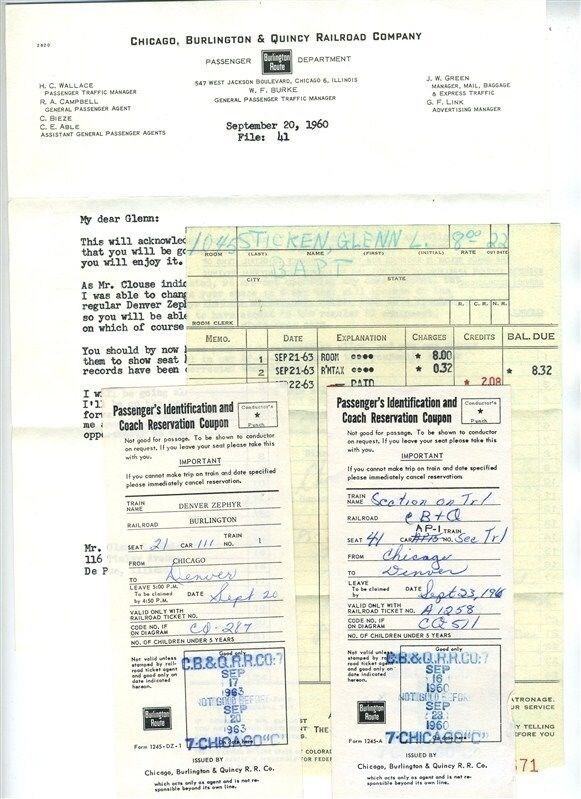 2820
CHICAGO, BURLINGTON & QUINCY RAILROAD COMPANY
PASSENGER Burlington Route DEPARTMENT
547 WEST JACKSON BOULEVARD, CHICAGO 6, ILLINOIS
W. F. BURKE
GENERAL PASSENGER TRAFFIC MANAGER
H. C. WALLACE
PASSENGER TRAFFIC MANAGER
R. A. CAMPBELL
GENERAL PASSENGER AGENT
C. BIEZE
C. E. ABLE
ASSISTANT GENERAL PASSENGER AGENTS
J. W. GREEN
MANAGER, MAIL, BAGGAGE
& EXPRESS TRAFFIC
G. F. LINK
ADVERTISING MANAGER
September 20, 1960
File: 41
My dear Glenn:
This will acknowled
that you will be go
you will enjoy it.
As Mr. Clouse indic
I was able to chang
regular Denver Zeph
so you will be able
on which of course
You should by now
them to show seat
records have been
I w
I'll
for
me a
opp
Mr.
116
De P
1045 STICKEN, GLENN L. 8.00 22
ROOM (LAST) NAME (FIRST) (INITIAL) RATE OUT DATE
BAPT
CITY STATE
R. C.R. N.R.
ROOM CLERK
MEMO. DATE EXPLANATION CHARGES CREDITS BAL. DUE
1 SEP 21-63 ROOM * 8.00
2 SEP 21-63 R'MTAX * 0.32 * 8.32
22-63 PAID * 2.08
Passenger's Identification and
Coach Reservation Coupon
Conductor's
★
Punch
Not good for passage. To be shown to conductor
on request. If you leave your seat please take this
with you.
IMPORTANT
If you cannot make trip on train and date specified
please immediately cancel reservation.
TRAIN NAME DENVER ZEPHYR
RAILROAD BURLINGTON
SEAT 21 CAR 111 TRAIN NO. 1
FROM CHICAGO
TO Denver
LEAVE 5:00 P.M.
To be claimed by 4:50 P.M. DATE Sept 20
VALID ONLY WITH
RAILROAD TICKET NO.
CODE NO. IF
ON DIAGRAM CQ-217
NO. OF CHILDREN UNDER 5 YEARS
Not valid unless
stamped by rail-
road ticket agent
and good only on
date indicated
hereon.
Good only
C.B.& Q.R.R.CO:7
SEP
17
1963
NOT GOOD BEFORE
SEP
20
1963
7-CHICAGO "C"
Burlington Route
Form 1245-DZ-1
ISSUED BY
Chicago, Burlington & Quincy R. R. Co.
which acts only as agent and is not re-
sponsible beyond its own line.
Passenger's Identification and
Coach Reservation Coupon
Conductor's
★
Punch
Not good for passage. To be shown to conductor
on request. If you leave your seat please take this
with you.
IMPORTANT
If you cannot make trip on train and date specified
please immediately cancel reservation.
TRAIN NAME Section on Tr 1
RAILROAD CB+Q
SEAT 41 CAR AP-1 TRAIN NO. Sec Tr 1
FROM Chicago
TO Denver
LEAVE
To be claimed
by DATE Sept 23, 196
VALID ONLY WITH
RAILROAD TICKET NO. A1258
CODE NO. IF
ON DIAGRAM CQ511
NO. OF CHILDREN UNDER 5 YEARS
Not valid unless
stamped by rail-
road ticket agent
and good only on
date indicated
hereon.
Good only
C.B.& Q.R.R.CO:7
SEP
16
1960
NOT GOOD BEFORE
SEP
23
1960
7-CHICAGO "C"
Burlington Route
Form 1245-A
ISSUED BY
Chicago, Burlington & Quincy R. R. Co.
which acts only as agent and is not re-
sponsible beyond its own line.
AST
THE
COLORAD
FOR FEDER
ATRONAGE.
UR SERVICE
Y TELLING
EFORE YOU
671